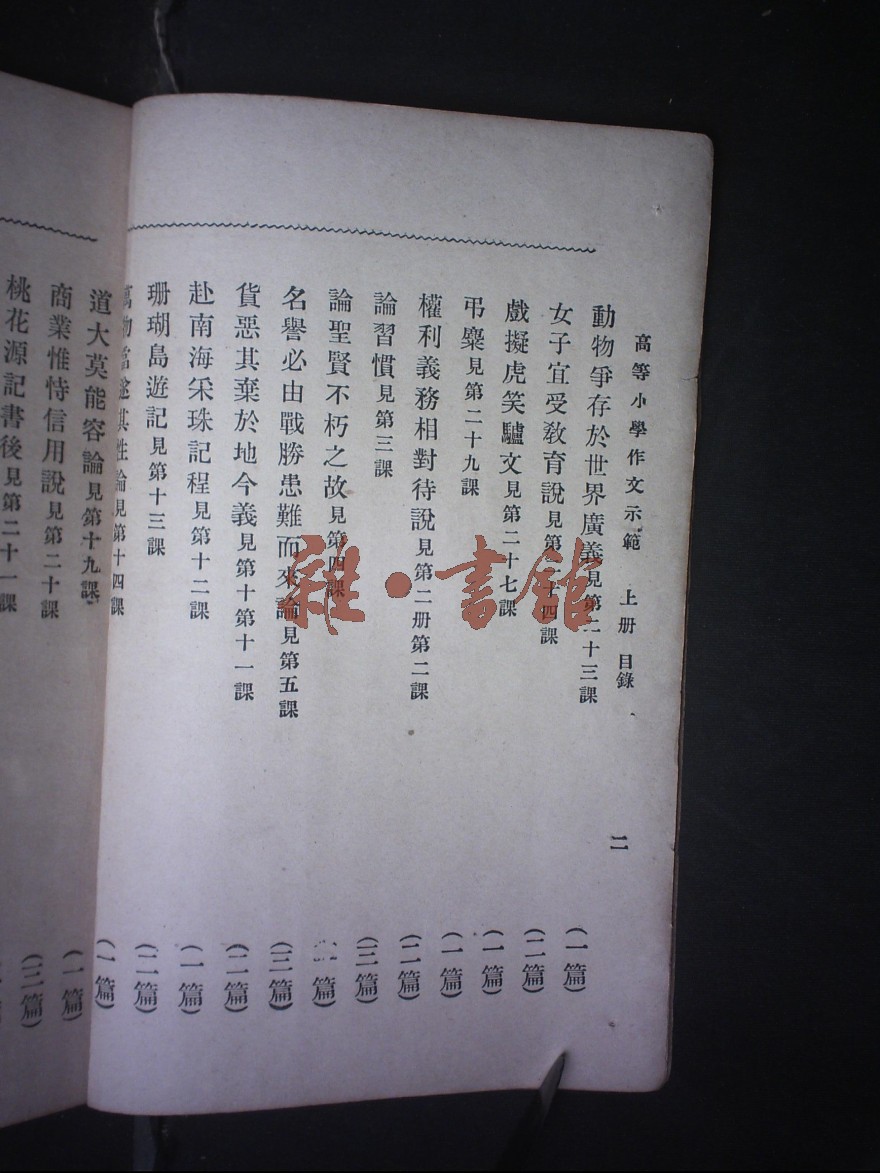 高等小學作文示範 上册 目錄 二
動物爭存於世界廣義見第二十三課 (一篇)
女子宜受教育說見第 十四課 (二篇)
戲擬虎笑驢文見第二十七課 (一篇)
弔麋見第二十九課 (一篇)
權利義務相對待說見第二册第二課 (二篇)
論習慣見第三課 (三篇)
論聖賢不朽之故見第四課 篇)
名譽必由戰勝患難而來論見第五課 (三篇)
貨惡其棄於地今義見第十第十一課 (二篇)
赴南海采珠記程見第十二課 (一篇)
珊瑚島遊記見第十三課 (二篇)
萬物當遂其性論見第十四課 (一篇)
道大莫能容論見第十九課 (一篇)
商業惟恃信用說見第二十課 (三篇)
桃花源記書後見第二十一課
雜·書館